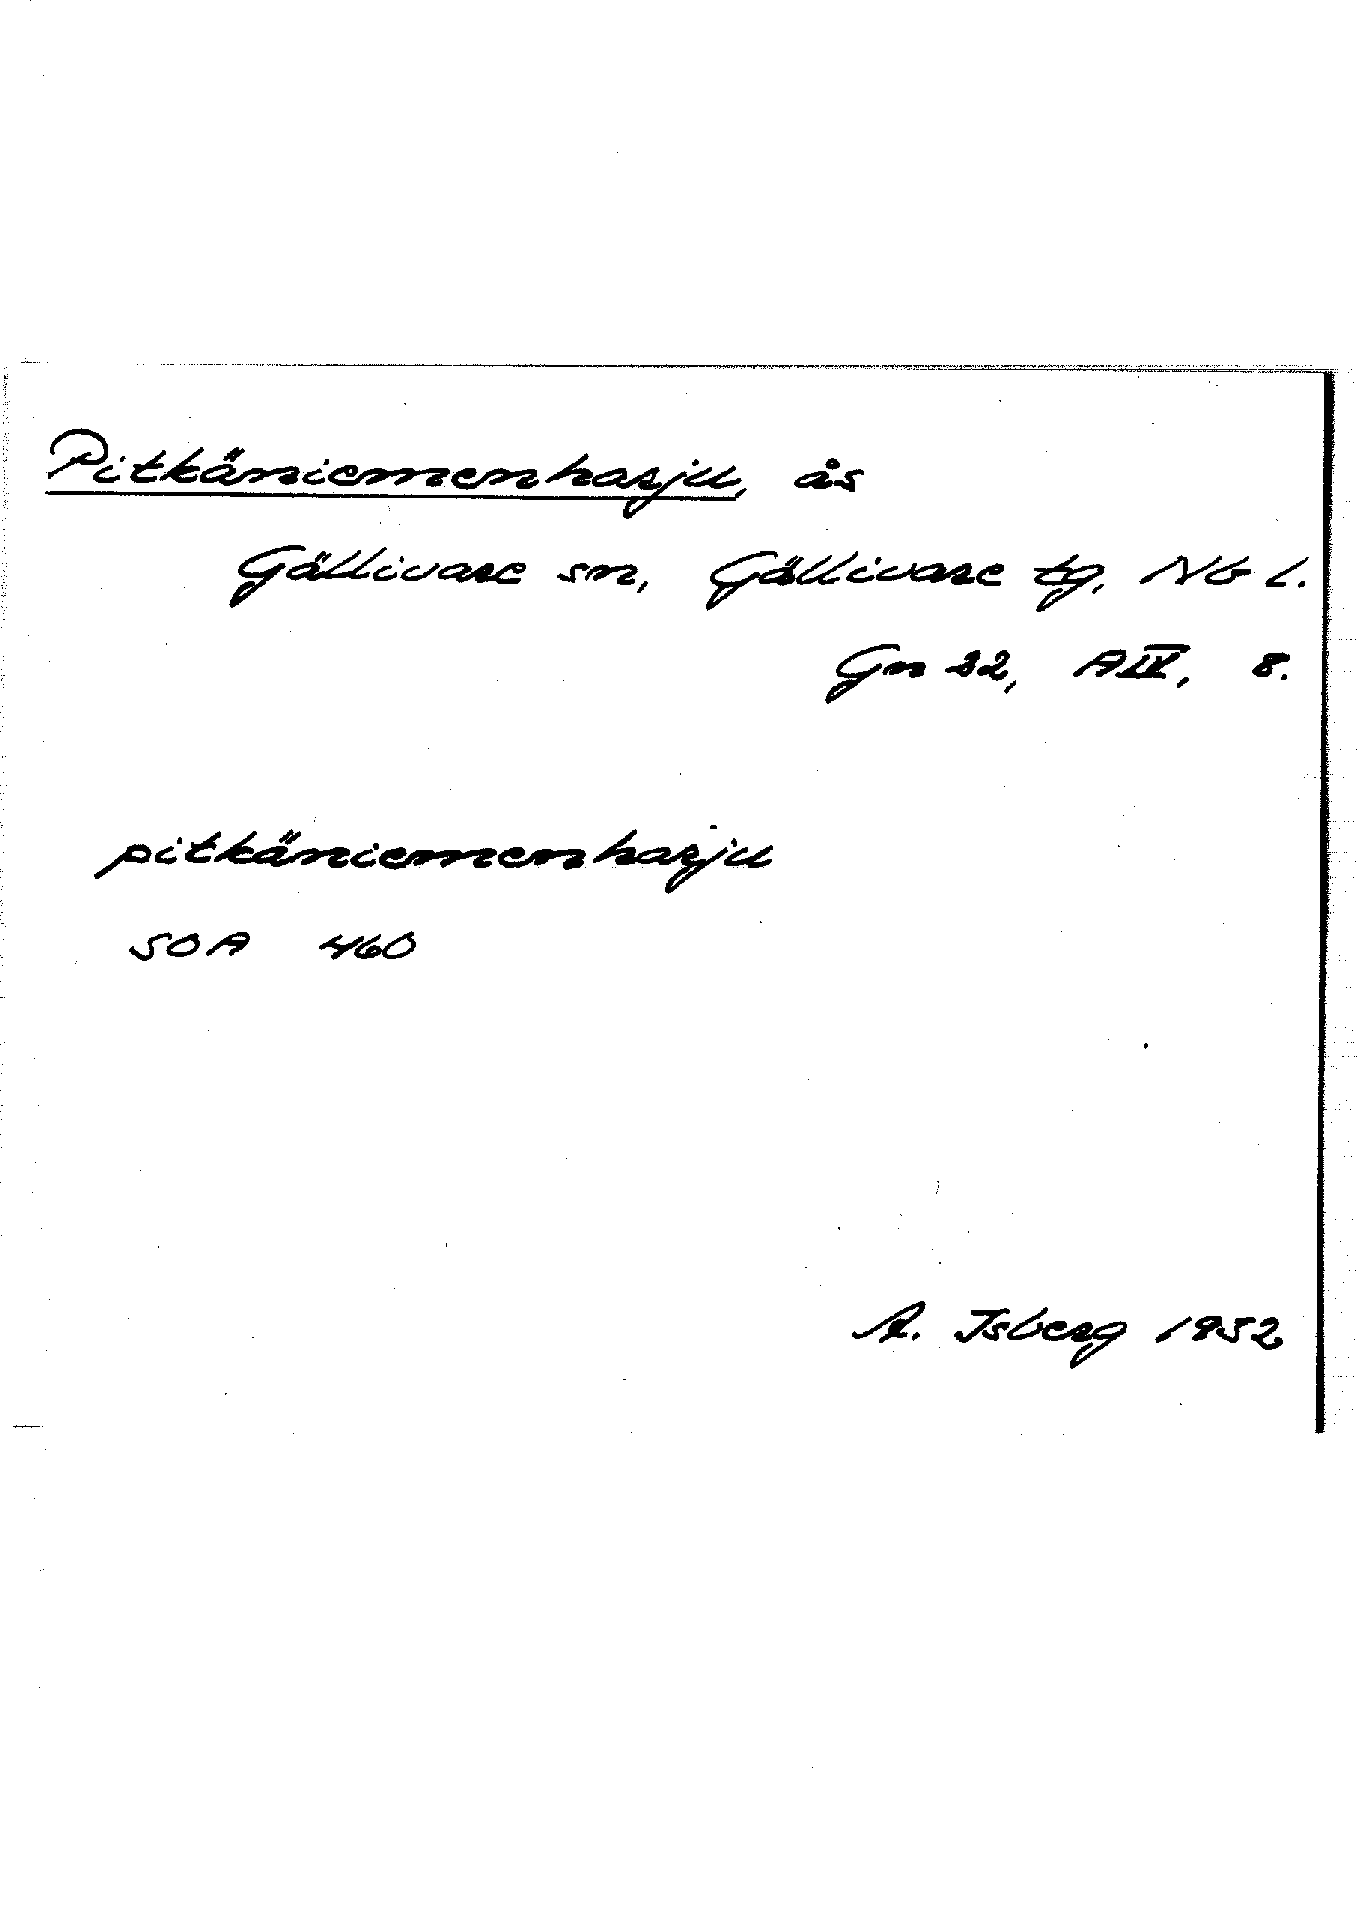 Pitkäniemenharju, ås
Gällivare sn, Gällivare tg. NB l.
Gn 22, A IV, 8.
pitkäniemenharju
SOA 460
A. Isberg 1952